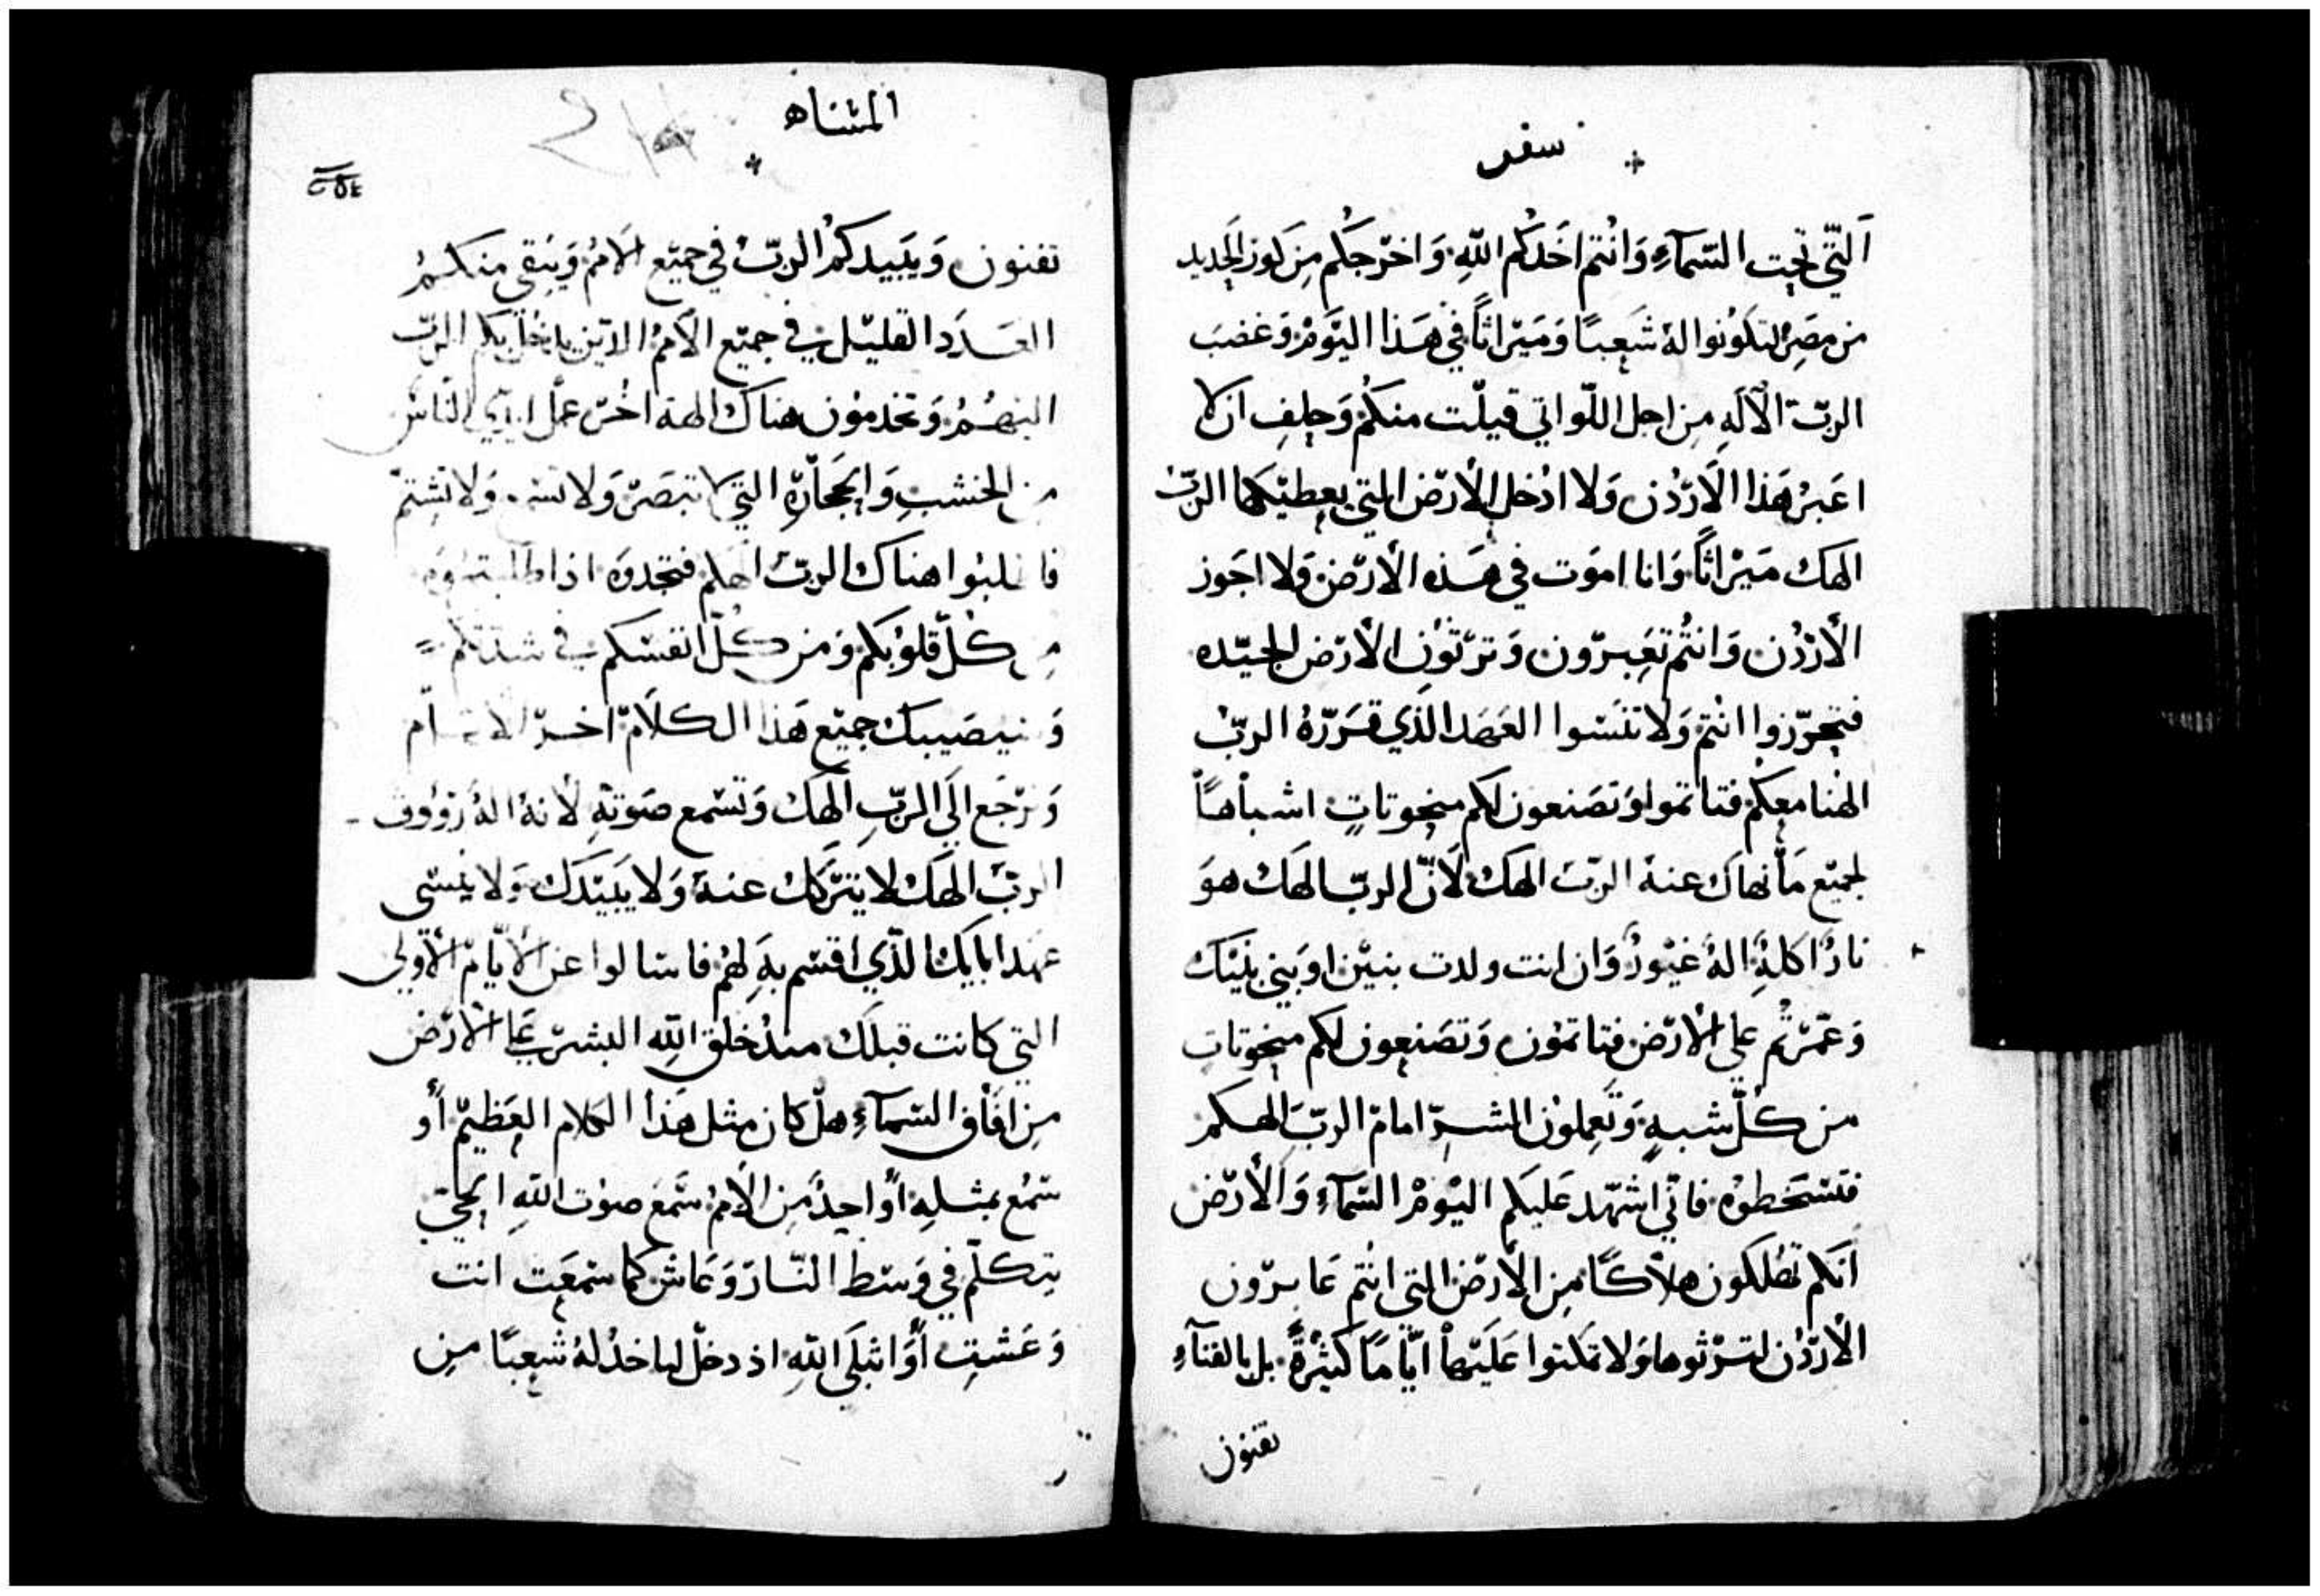 سفر
التّي تحت السّمآءِ وَانْتم اخَدكم اللّهِ وَاخرّجكم مِن كوز الحَديد
من مصِرْ لتكوُنوا لهُ شَعبًا وَميْراثاً في هَذا اليَوْمْ وَغضبَ
الربّ الآلَهِ مِن اجل اللّواتي قيلّت منكمُ وَحلف ان لا
اعَبرُ هَذا الاَردُّن وَلا ادْخل الأرَض التي يعطيْكها الربّ
الهك ميَرْاثاً وَانا اموَت في هَذه الأرَض وَلا اجَوز
الأرْدُن وَانتُم تعَبرّون وَترّثوَن الأرَض الجيّده
فتحرّزوا انْتمْ وَلا تنَسَوا العَهَد الذَي قرَرّهُ الربّ
الهنا معكمْ فتاتموا وَتصَنعون لكم منحوتاتٍ اشبأهاً
لجميّع مَأ نهاكَ عنهُ الربّ الهكَ لاَنّ الربّ الهَك هوَ
نارُ اكلهُ الهُ غيَوُرُ وَان انت ولدت بنيْن اوَ بني بنيْك
وَعمّرْتُم علي الأرّض فتاتموُن وَتصَنعون لكم منحوتاتٍ
من كُلّ شبهٍ وَتعَملوُن الشرّ امامْ الربَّ الهكم
فتسَخطوُه فاني اشهّد عَليَكم اليْوَمْ السّمآءِ وَالأرّض
اَنكم تهَلكون هلاَكًا مِن الأرّض التي انتُم عَابرّون
الأرْدُّن لترّثوها وَلا تمكثوا عَليَهاْ ايّاْمًا كثيْرةً بل بالفنآءِ
تفنون
المثناه
٢٥٤
تفنون وَيبَيدكمُ الربّ في جميّع الاَممُ وَيبَقي منكمُ
العَدَد القليّل في جميّع الأَممُ الذّين يدخلكم الربّ
اليهُمُ وَتخدموُن هناكَ الهة اخُرّ عمَل ايدّي النّاسْ
من الخشبِ وَالحَجَارّةِ التي لا تبصَرّ وَلا تسمع وَلا تشتمّ
فاطلبوُا هناكَ الربّ الهكم فتجَدوَه اذا طلبتموُه
من كُلّ قلوُبكم وَمن كُلّ انفسَكم في شدّتكم
وَسيصَيبك جميّع هَذا الكلاَمّ اخرّ الايام
وَترّجَع الَي الربِّ الهَكَ وَتسْمع صَوْتهِ لأنهُ الهُ رَؤوُف
الربّ الهَك لا يترّكك عنهُ وَلا يبَيّدَك وَلا ينسَي
عَهَد ابايكَ الذّي اقسَم بهِ لهمْ فاسالوا عن الأيّامّ الأوّلي
التي كانت قبلَك منذُ خلق اللّه البشرّ عَلي الأرّض
مِن افاْق السّمآءِ هلّ كان مثل هَذا الكلام العَظيمّ أوَ
سمُع بمثلهِ أوَ احدُ مَن الاَممُ سمَع صوَت اللّهِ الحَيّ
يتكلّم في وَسَط النّارّ وَعَاش كما سمعَت انت
وَعَشتِ أوَ ابتلَي اللّهِ اذ دخلّ لياخذُ لهُ شعَبًا مِن